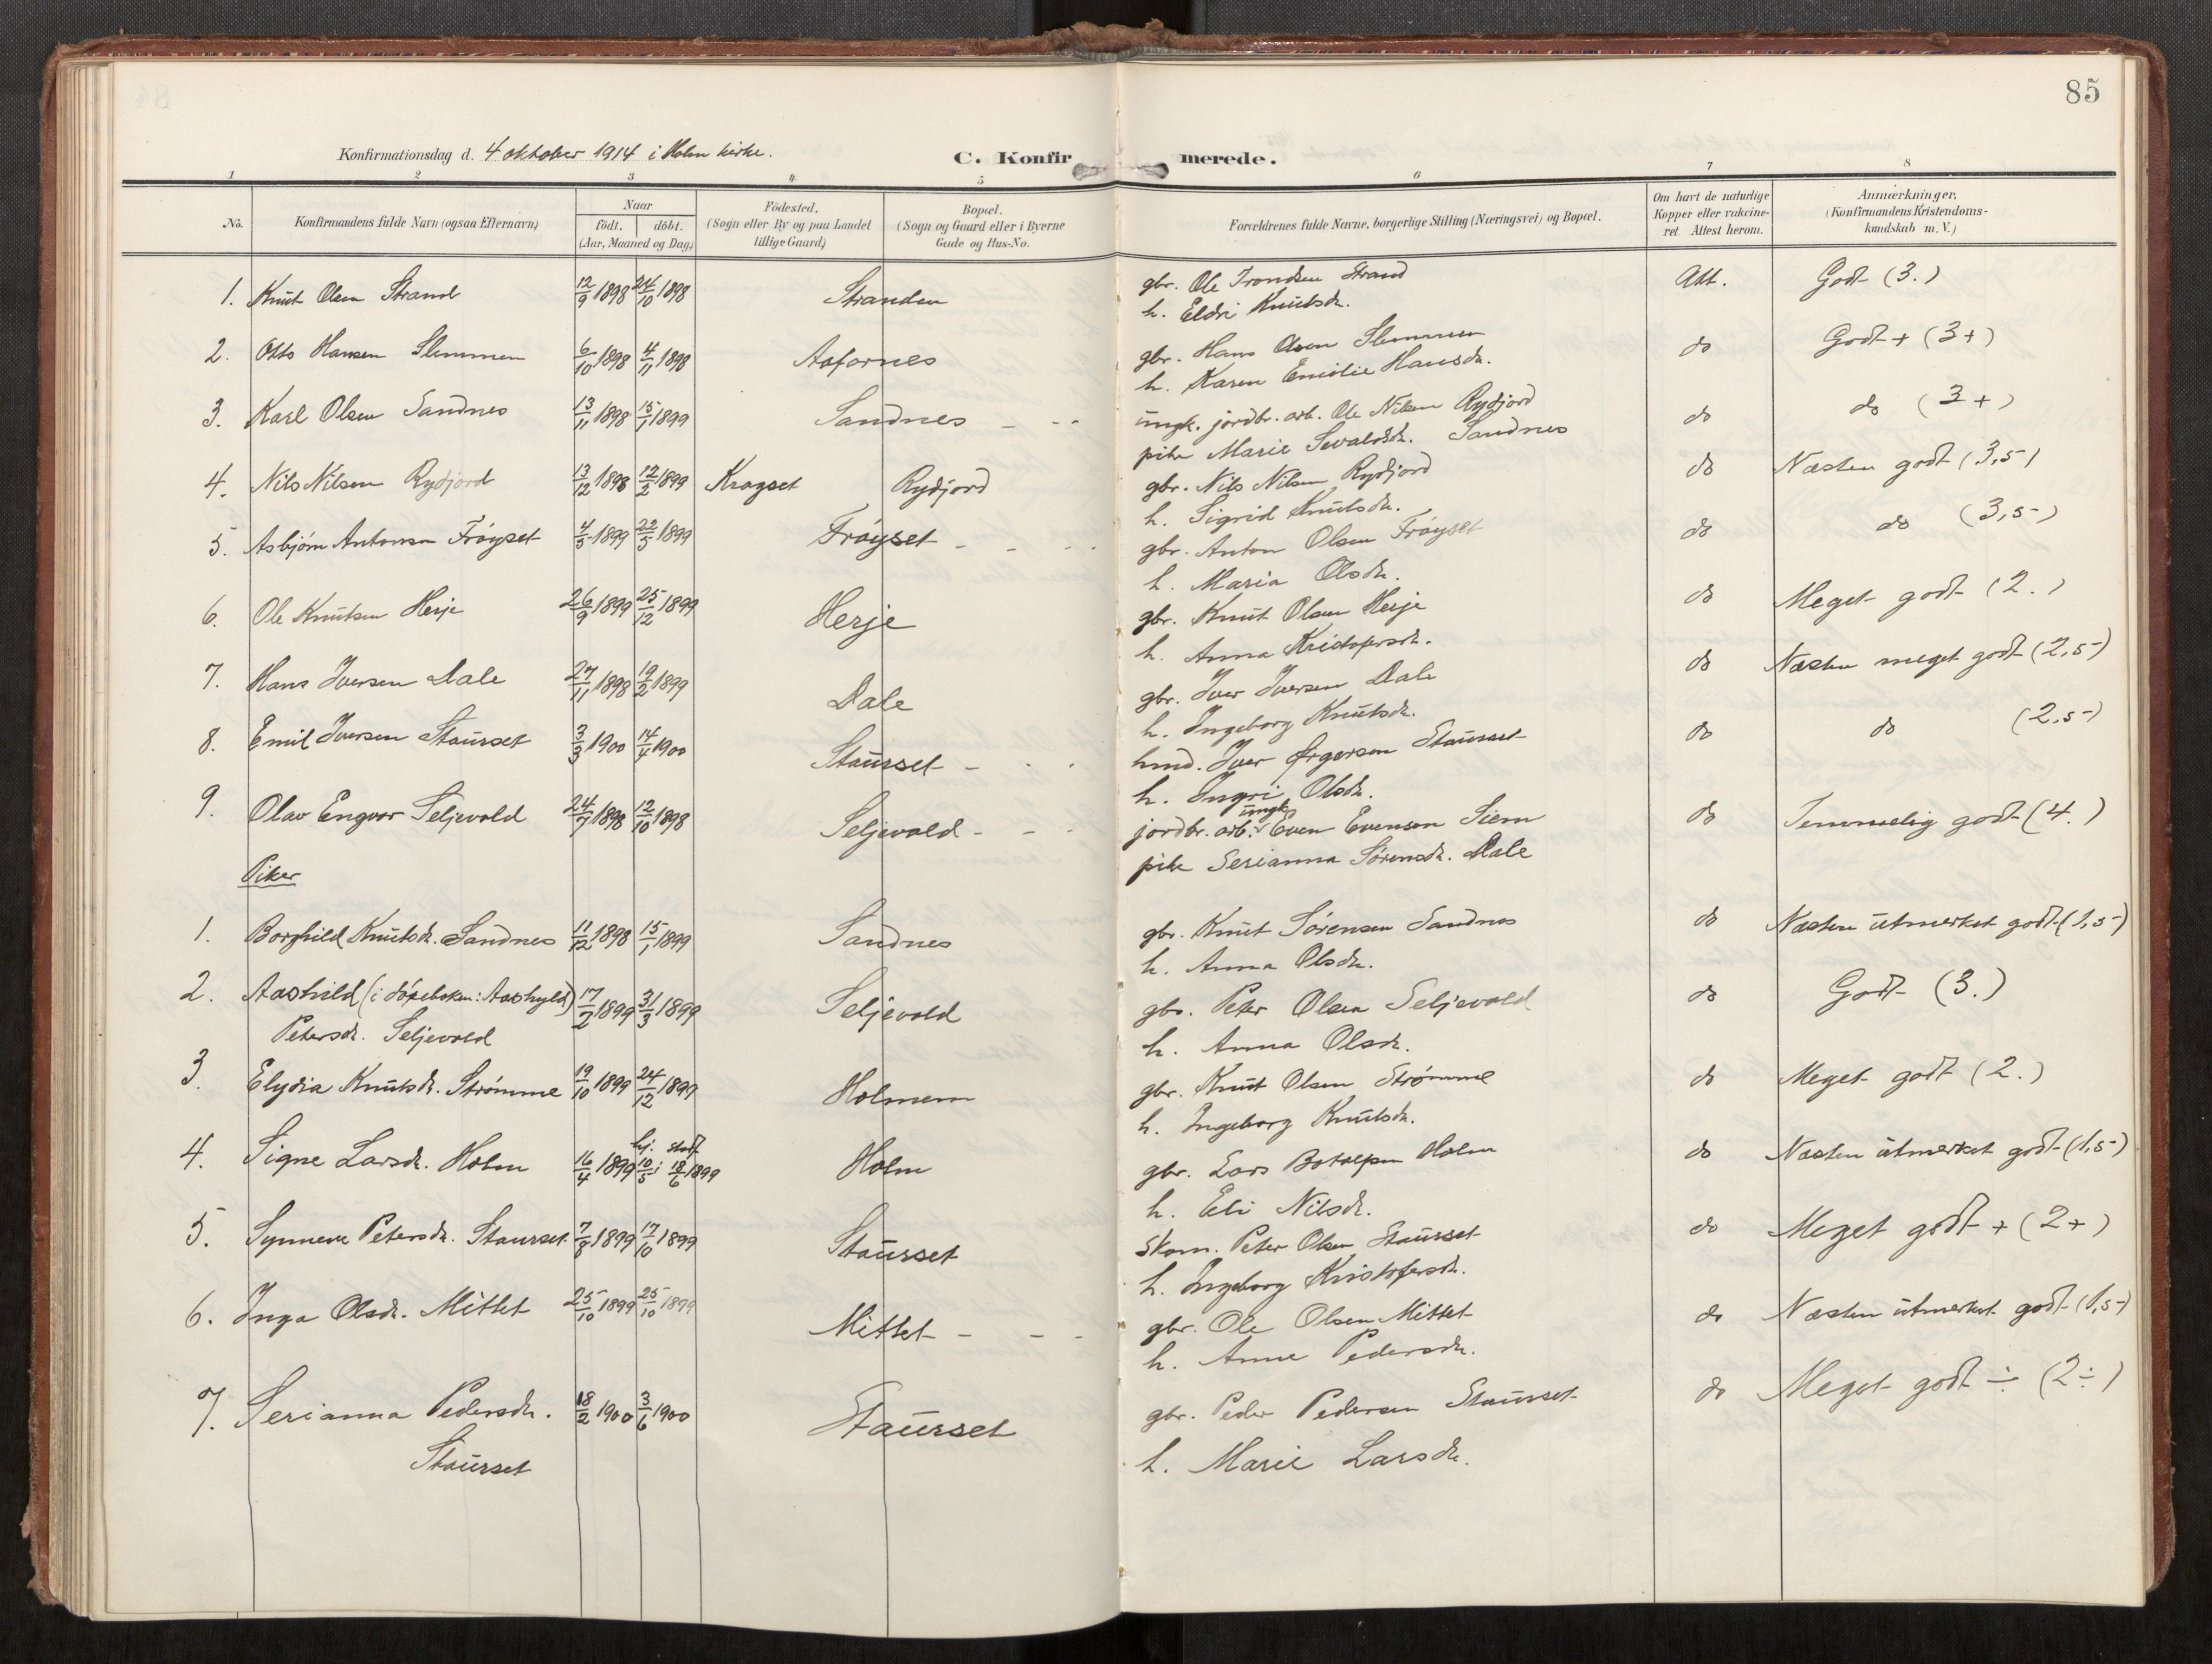 85
Konfirmationsdag d. 4 oktober 1914 i Holm kirke.
C. Konfirmerede.
1 2 3 4 5 6 7 8
No. Konfirmandens fulde Navn (ogsaa Efternavn) Naar født. døbt. (Aar, Maaned og Dag.) Födested. (Sogn eller By og paa Landet tillige Gaard) Bopæl. (Sogn og Gaard eller i Byerne Gade og Hus-No. Forældrenes fulde Navne, borgerlige Stilling (Næringsvei) og Bopæl. Om havt de naturlige Kopper eller vakcineret. Attest herom. Anmærkninger. (Konfirmandens Kristendomskundskab m. V.)
1. Knut Olsen Strand 12/9 1898 24/10 1898 Stranden gbr. Ole Trondsen Strand Att. Godt (3.)
h. Eldri Knutsdr.
2. Otto Hansen Slemmen 6/10 1898 4/11 1898 Aafarnes gbr. Hans Olsen Slemmen do Godt + (3+)
h. Karen Emilie Hansdr.
3. Karl Olsen Sandnes 13/11 1898 15/1 1899 Sandnes - - - ungk. jordbr. arb. Ole Nilsen Rydjord do do (3+)
pike Marie Sevaldsdr. Sandnes
4. Nils Nilsen Rydjord 13/12 1898 12/2 1899 Kragset Rydjord gbr. Nils Nilsen Rydjord do Næsten godt (3,5)
h. Sigrid Knutsdr.
5. Asbjørn Antonsen Frøyset 4/3 1899 22/5 1899 Frøyset - - - gbr. Anton Olsen Frøyset do do (3,5)
h. Maria Olsdr.
6. Ole Knutsen Herje 26/9 1899 25/12 1899 Herje gbr. Knut Olsen Herje do Meget godt (2.)
h. Anna Kristofersdr.
7. Hans Iversen Dale 27/11 1898 19/2 1899 Dale gbr. Iver Iversen Dale do Næsten meget godt (2,5)
h. Ingeborg Knutsdr.
8. Emil Iversen Staurset 3/3 1900 14/4 1900 Staurset - - - hmd. Iver Ørgersen Staurset do do (2,5)
h. Ingri Olsdr.
9. Olav Engvar Seljevold 24/7 1898 12/10 1898 Seljevold - - - jordbr. arb. ungk. Even Evensen Siem do Temmelig godt (4.)
pike Serianna Sørensdr. Dale
Piker
1. Borghild Knutsdr. Sandnes 11/12 1898 15/1 1899 Sandnes gbr. Knut Sørensen Sandnes do Næsten utmerket godt (1,5)
h. Anna Olsdr.
2. Aashild (i døpeboken: Aashyld) 17/2 1899 31/3 1899 Seljevold gbr. Peter Olsen Seljevold do Godt (3.)
Petersdr. Seljevold h. Anna Olsdr.
3. Elydia Knutsdr. Strømme 19/10 1899 24/12 1899 Holmem gbr. Knut Olsen Strømme do Meget godt (2.)
h. Ingeborg Knutsdr.
4. Signe Larsdr. Holm 16/4 1899 hj. 10/5 i stadf. 18/6 1899 Holm gbr. Lars Botolfsen Holm do Næsten utmerket godt (1,5)
h. Eli Nilsdr.
5. Synneve Petersdr. Staurset 7/8 1899 17/10 1899 Staurset skom. Peter Olsen Staurset do Meget godt + (2+)
h. Ingeborg Kristofersdr.
6. Inga Olsdr. Mittet 25/10 1899 25/10 1899 Mittet - - - gbr. Ole Olsen Mittet do Næsten utmerket godt (1,5)
h. Anne Pedersdr.
7. Serianna Pedersdr. 18/2 1900 3/6 1900 Staurset gbr. Peder Pedersen Staurset do Meget godt ÷ (2÷)
Staurset h. Marie Larsdr.